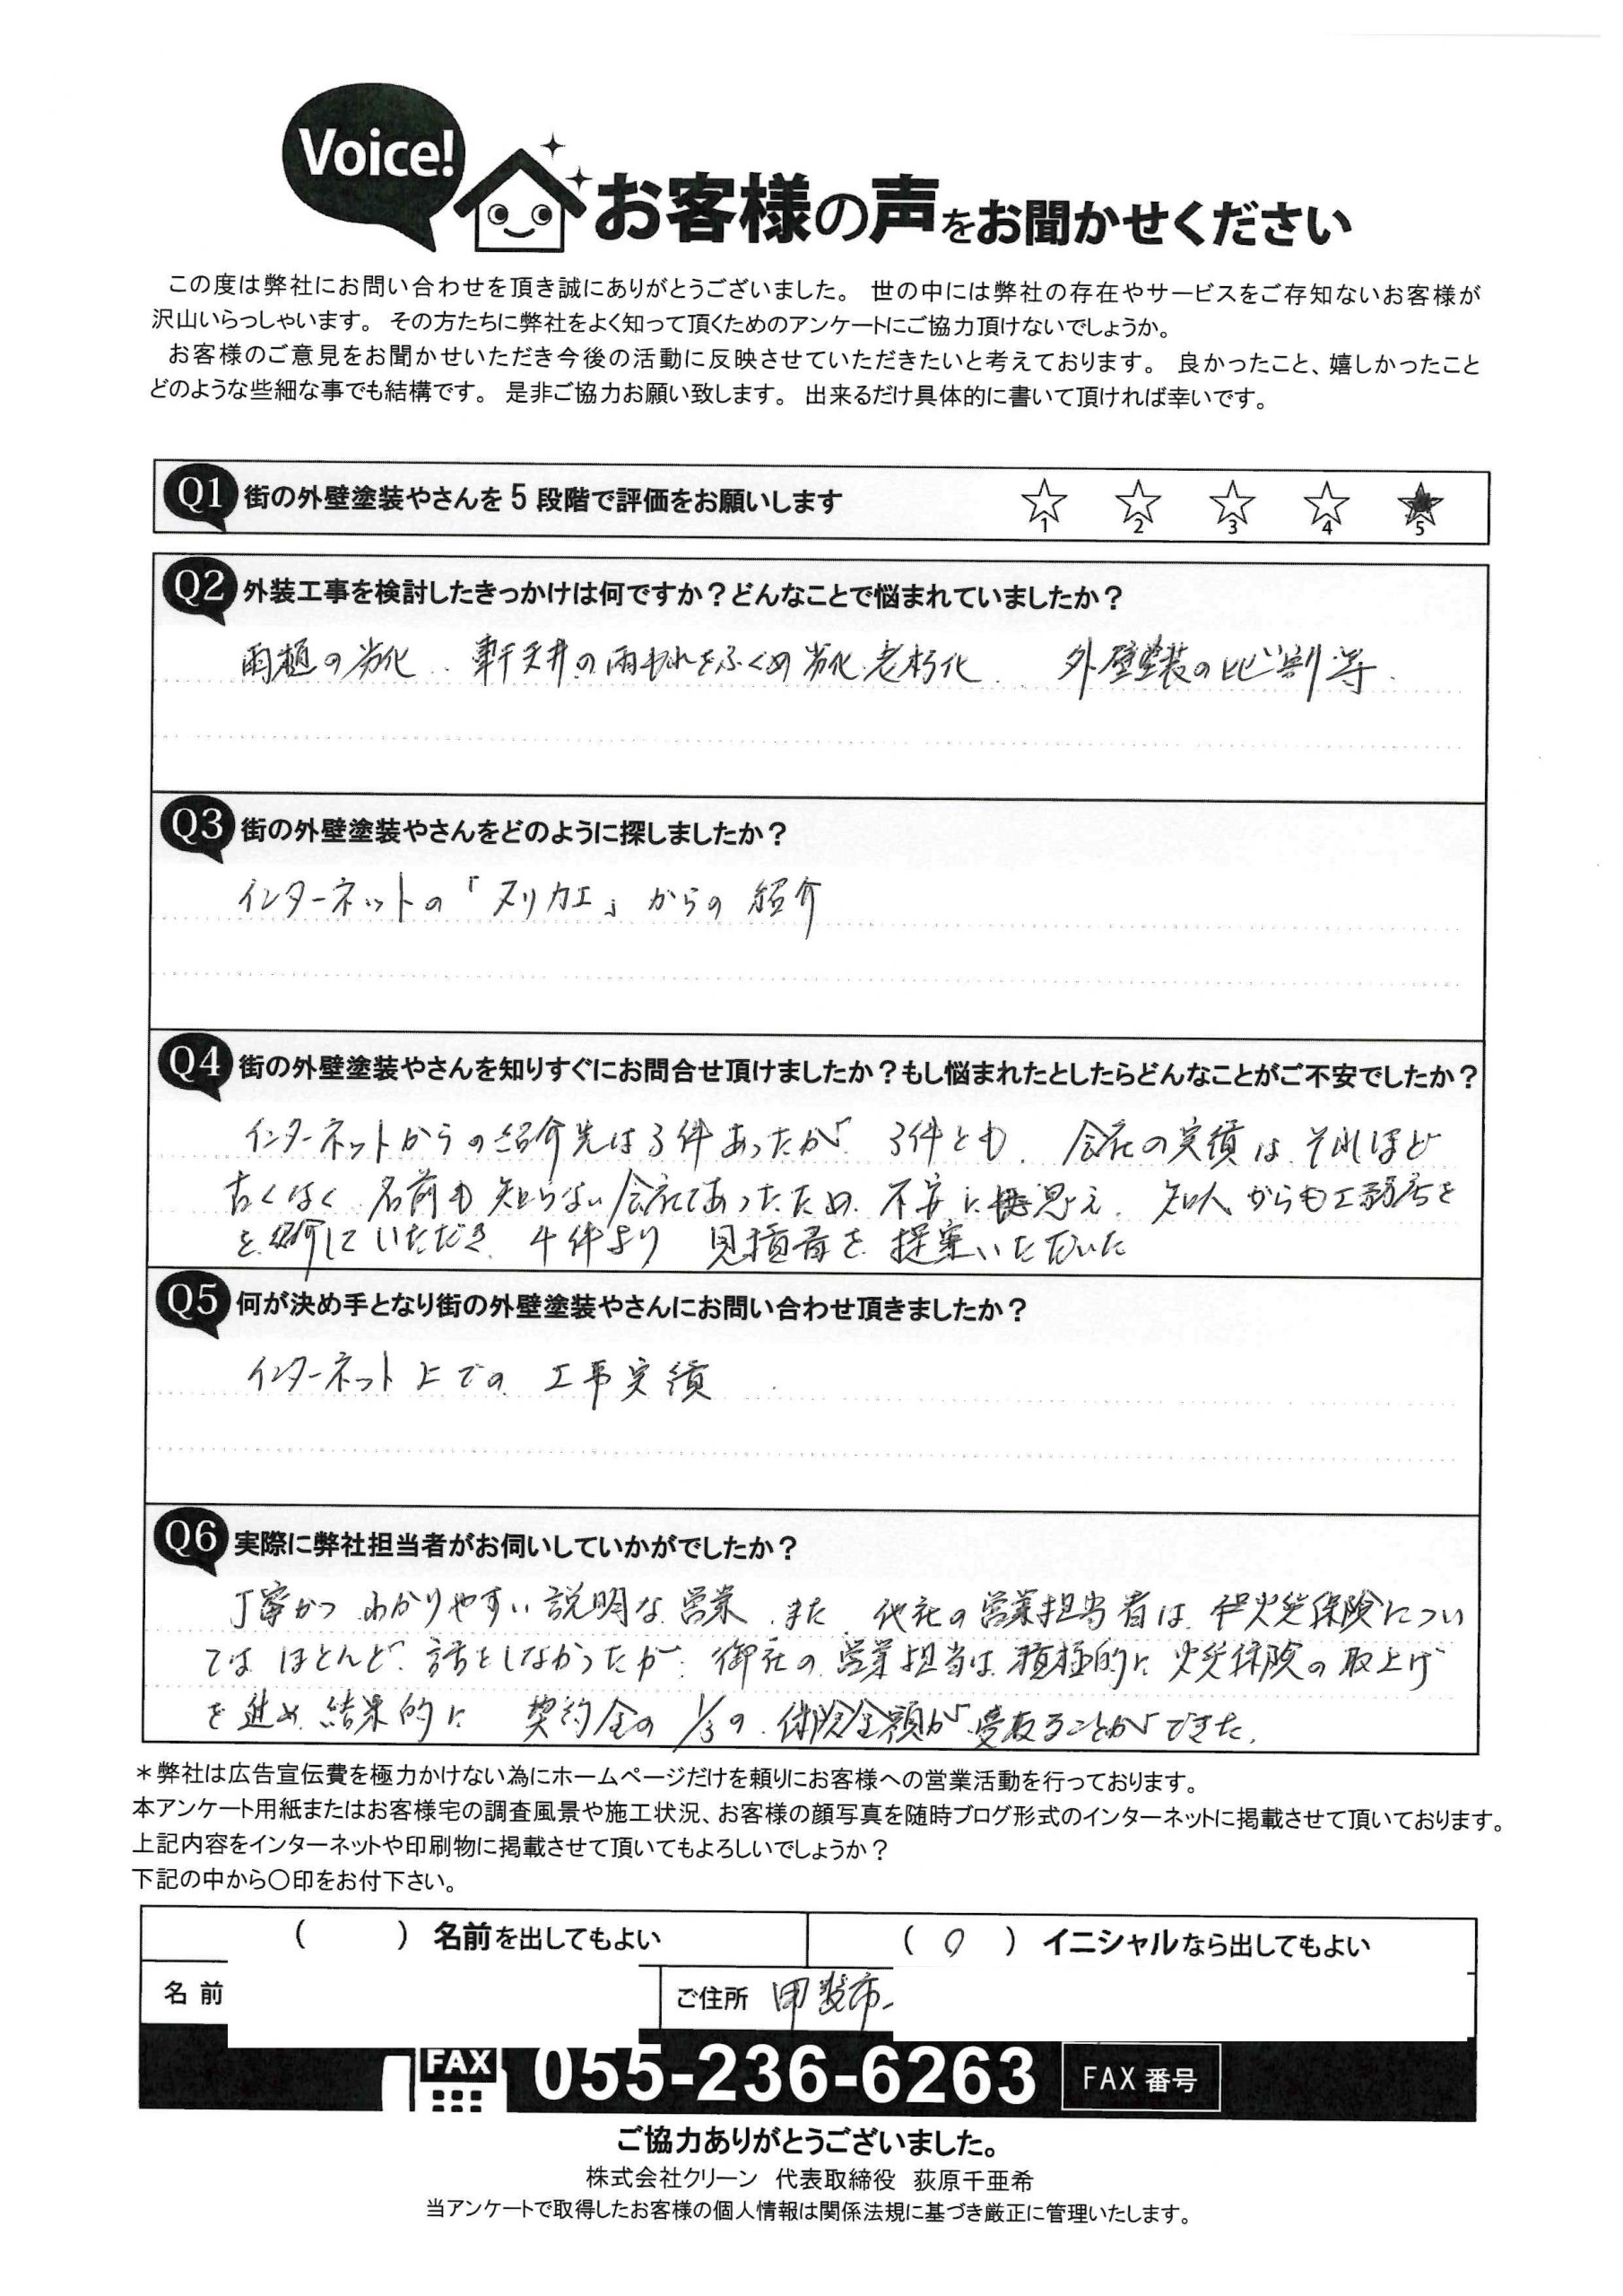 Voice!
お客様の声をお聞かせください
この度は弊社にお問い合わせを頂き誠にありがとうございました。 世の中には弊社の存在やサービスをご存知ないお客様が
沢山いらっしゃいます。 その方たちに弊社をよく知って頂くためのアンケートにご協力頂けないでしょうか。
お客様のご意見をお聞かせいただき今後の活動に反映させていただきたいと考えております。 良かったこと、嬉しかったこと
どのような些細な事でも結構です。 是非ご協力お願い致します。 出来るだけ具体的に書いて頂ければ幸いです。
Q1 街の外壁塗装やさんを5段階で評価をお願いします 1 2 3 4 5
Q2 外装工事を検討したきっかけは何ですか？どんなことで悩まれていましたか？
雨樋の劣化 軒天井の雨もれをふくめ劣化.老朽化 外壁塗装のヒビ割等
Q3 街の外壁塗装やさんをどのように探しましたか？
インターネットの「ヌリカエ」からの紹介
Q4 街の外壁塗装やさんを知りすぐにお問合せ頂けましたか？もし悩まれたとしたらどんなことがご不安でしたか？
インターネットからの紹介先は3件あったが 3件とも 会社の実績はそれほど
古くはく 名前も知らない会社であったため 不安に思え 知人からも工務店を
を紹介していただき 4件より 見積書を提案いただいた
Q5 何が決め手となり街の外壁塗装やさんにお問い合わせ頂きましたか？
インターネット上での 工事実績
Q6 実際に弊社担当者がお伺いしていかがでしたか？
丁寧かつ わかりやすい説明な営業 また 代社の営業担当者は 火災保険につい
ては ほとんど 話をしなかったが 御社の営業担当は積極的に火災保険の取上げ
を進め 結果的に 契約金の1/3の 保険金額が受取ることができた.
＊弊社は広告宣伝費を極力かけない為にホームページだけを頼りにお客様への営業活動を行っております。
本アンケート用紙またはお客様宅の調査風景や施工状況、お客様の顔写真を随時ブログ形式のインターネットに掲載させて頂いております。
上記内容をインターネットや印刷物に掲載させて頂いてもよろしいでしょうか？
下記の中から〇印をお付下さい。
（ ）名前を出してもよい （ ○ ）イニシャルなら出してもよい
名 前 ご住所 甲斐市
FAX 055-236-6263 FAX 番号
ご協力ありがとうございました。
株式会社クリーン 代表取締役 荻原千亜希
当アンケートで取得したお客様の個人情報は関係法規に基づき厳正に管理いたします。